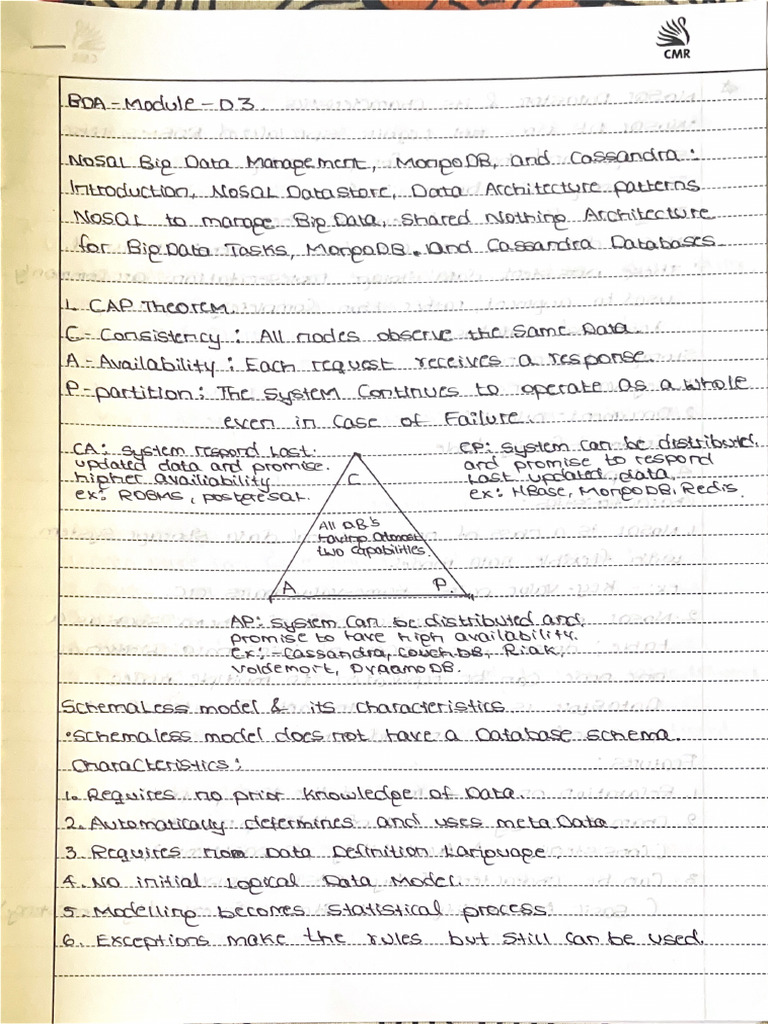 CMR
BDA - Module - 03
NoSQL Big Data Management, MongoDB, and Cassandra:
Introduction, NoSQL DataStore, Data Architecture patterns
NoSQL to manage Big Data, Shared Nothing Architecture
for Big Data Tasks, MongoDB. and Cassandra Databases
1. CAP Theorem.
C- Consistency: All nodes observe the same Data.
A- Availability: Each request receives a response.
P-partition: The System Continues to operate as a whole
even in Case of Failure.
CA: System respond Last
updated data and promise.
higher availiability
ex: RDBMS, postgresQL.
CP: System can be distributed
and promise to respond
Last updated data,
ex: HBase, MongoDB, Redis.
C
All DB's
having Atmost
two capabilities.
A
P.
AP: System Can be distributed and
promise to have high availability.
Ex:- Cassandra, CouchDB, Riak,
Voldemort, DynamoDB.
SchemaLess model & its Characteristics
•Schemaless model does not have a Database schema.
Characteristics:
1. Requires no prior knowledge of Data.
2. Automatically determines and uses meta Data.
3. Requires Data Definition Language.
4. No initial Logical Data Model.
5. Modelling becomes statistical process
6. Exceptions make the rules but still can be used.